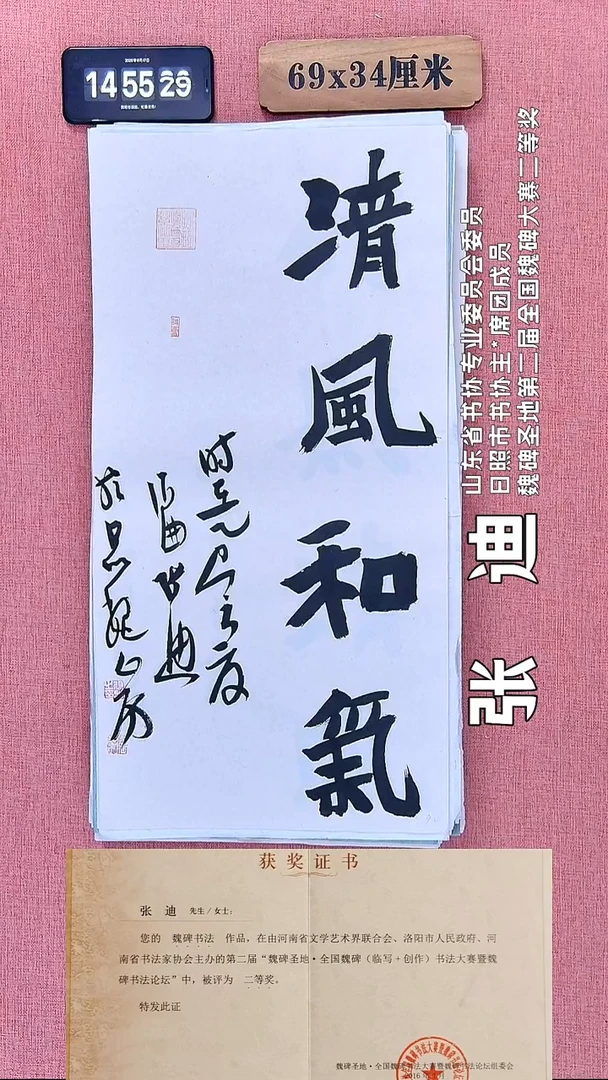 14 55 29
69x34厘米
清風和氣
山东省书协专业委员会委员
日照市书协主*席团成员
魏碑圣地第二届全国魏碑大赛二等奖
张 迪
获奖证书
张 迪 先生/女士：
您的 魏碑书法 作品，在由河南省文学艺术界联合会、洛阳市人民政府、河
南省书法家协会主办的第二届“魏碑圣地·全国魏碑（临写+创作）书法大赛暨魏
碑书法论坛”中，被评为 二等奖。
特发此证
魏碑圣地·全国魏碑书法大赛暨魏碑书法论坛组委会